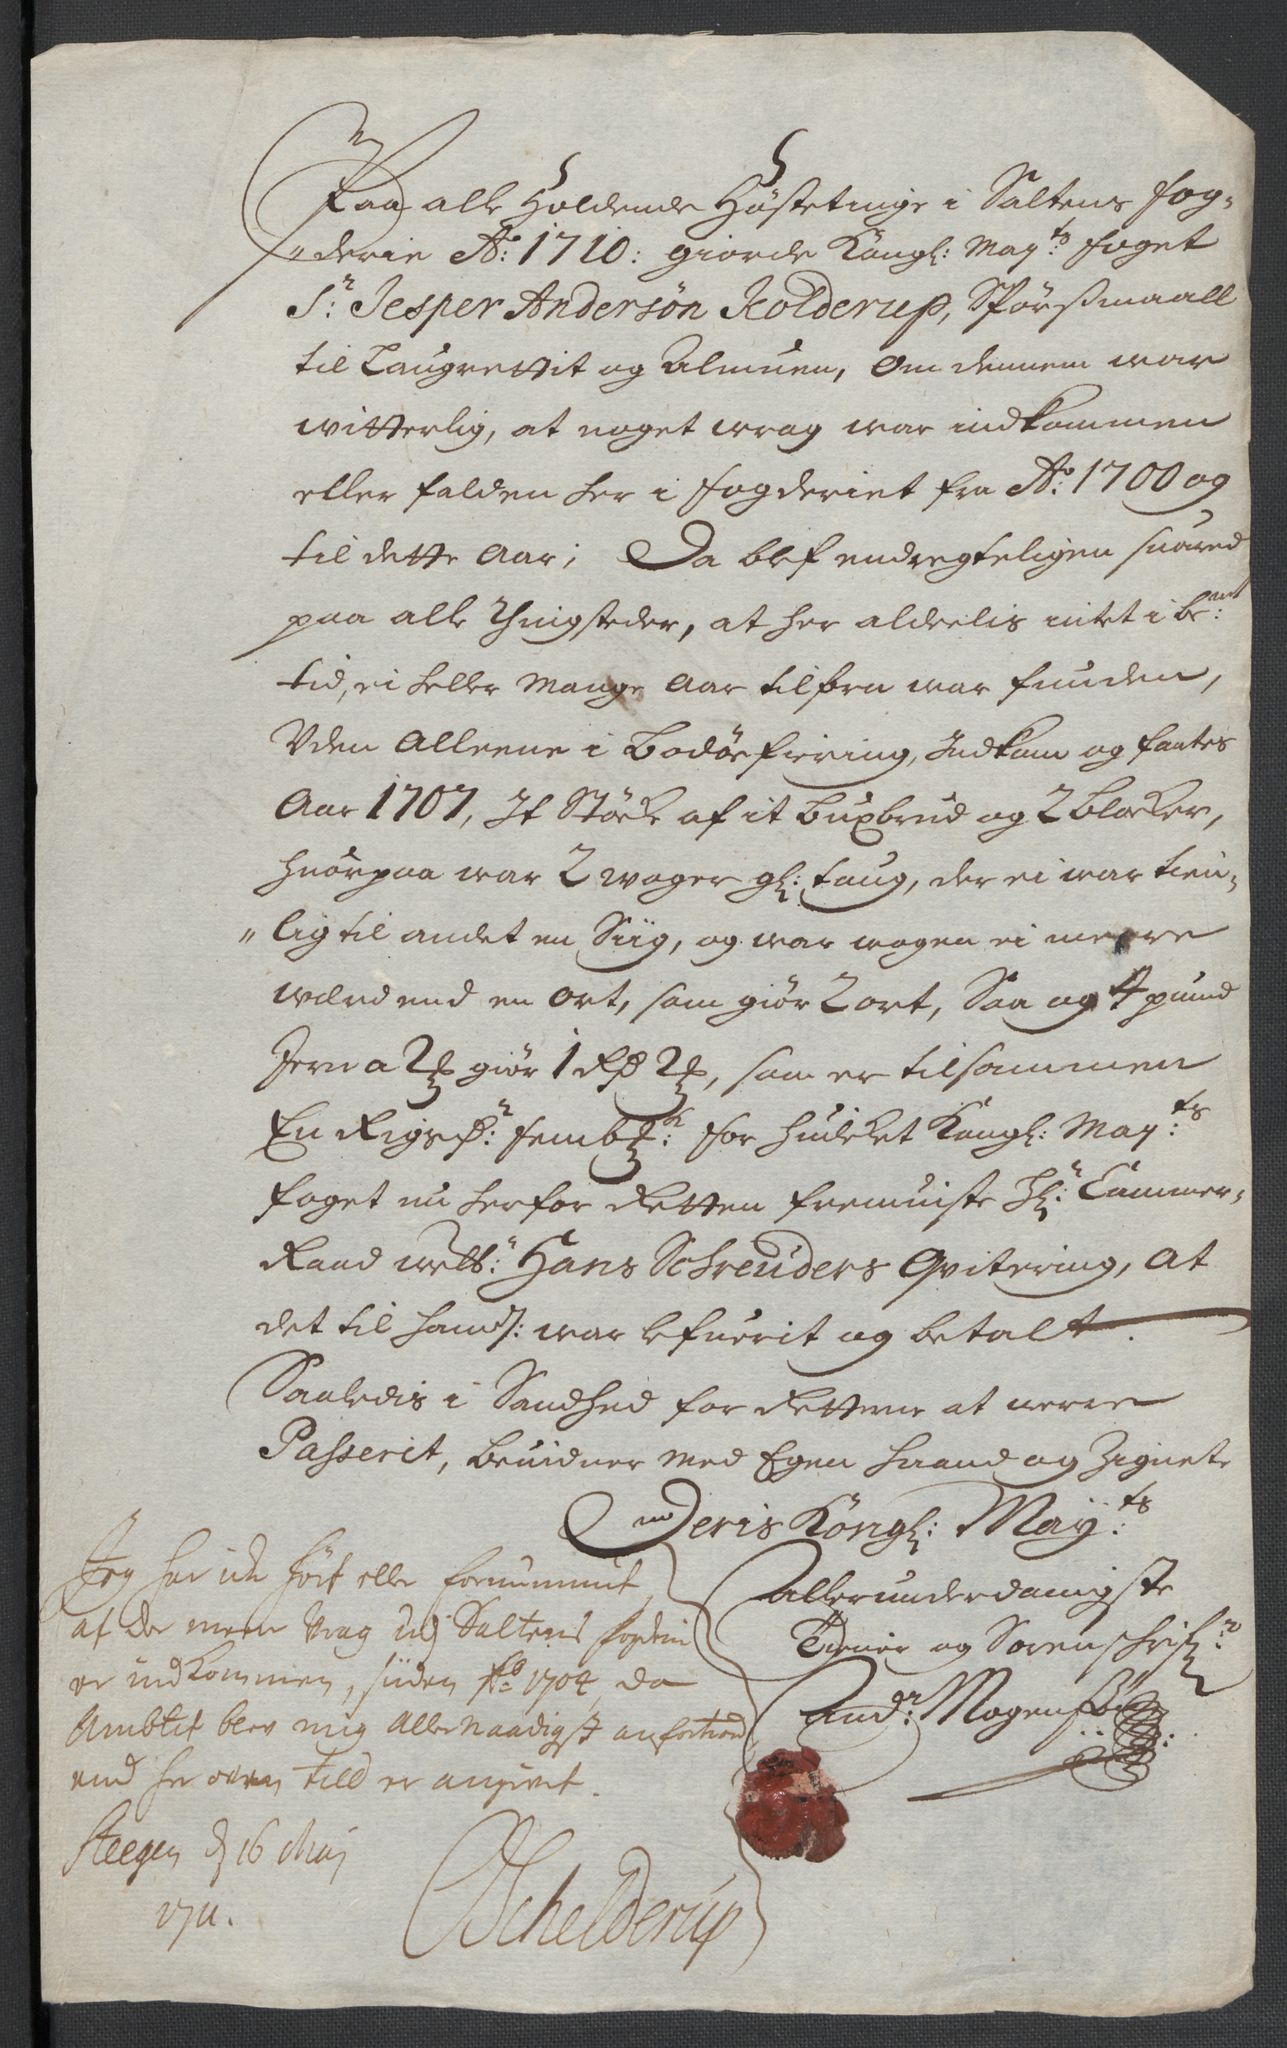 Paa alle Holdende Höstetinge i Saltens fog-
"derie Ao: 1710: giorde Kongl: Mayts: foget
Sr: Jesper Andersøn Kolderup, Spörsmaall
til Laugrettit og Almuen, om dennem war
witterlig, at noget wrag war indkommen
eller falden her i fogderiet fra Ao: 1700 og
til dette Aar; Da blef endregteligen suared
paa alle Thingsteder, at her aldeelis intet i bemt:
tid, ei heller mange Aar tilforn war funden,
Uden Alleene i Bodöefiering, Indkom og fantes
Aar 1707, It Stöcke af it buxbrud og 2 blocker,
huorpaa war 2 woger gl: taug, der ei war tien-
"lig til andet en Siig, og war wogen ei meere
wærd end en ort, som giör 2 ort, Saa og 4 pund
Jern a 2 ß giör 1 ort 2 ß, som er tilsammen
En Rigsdr: fembß: for huilcket Kongl: Mayts:
foget nu her for Retten fremuiste Hr: Cammer-
Raad welb: Hans Schreuders Qvitering, at
det til ham war lefuerit og betalt.
Saaledis i Sandhed for Retterne at werre
Passerit, beuidner med Egen haand og Zignete
Deris Kongl: Mayts:
allerunderdanigste
Tiener og Sorenschrifr:
Andr: Mogensen
Jeg har icke hört eller fornummit,
at der meere Vrag udj Saltens fogderie
er indkommen, siden Ao 1704, da
Ambtet blev mig Allernaadigst anfortroed,
end her oven till er angivet.
Steegen d 16 Maj
1711.
Schelderup